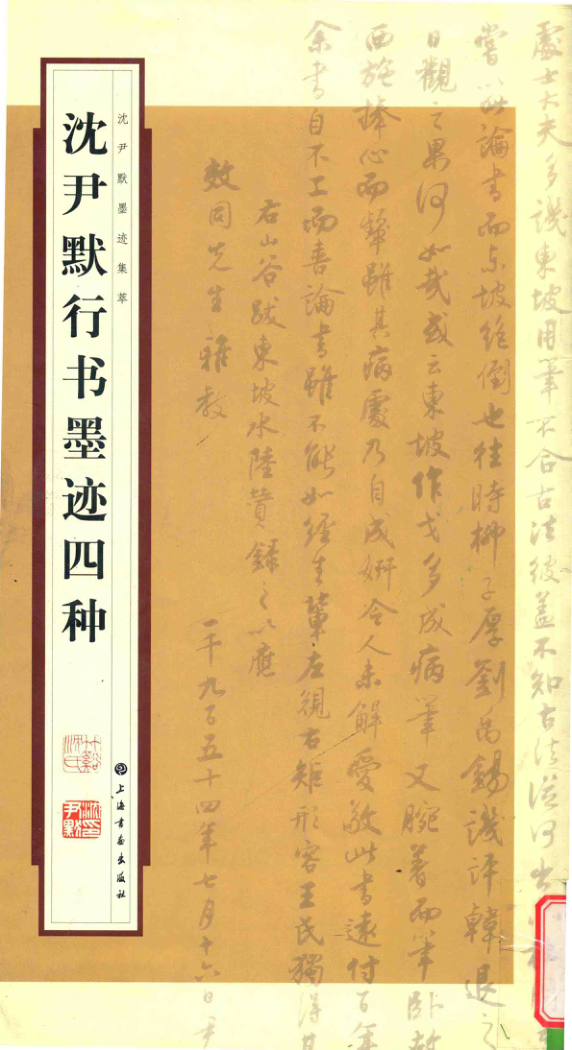 沈尹默墨迹集萃
沈尹默行书墨迹四种
上海书画出版社
竹溪沈氏
沈尹默印
处士大夫多讥东坡用笔不合古法彼盖不知古法从何出
尝以此論書而东坡絶倒也往時柳子厚劉禹錫譏評韓退之
日觀之果何如哉或云東坡作戈多成病筆又腕著而筆卧故
西施捧心而顰雖其病處乃自成妍今人未解愛敬此書遠付百年
余書自不工而喜論書雖不能如經生輩左規右矩形容王氏獨得其
右山谷跋東坡水陸贊錄之以應
效同先生雅教
一千九百五十四年七月十六日尹